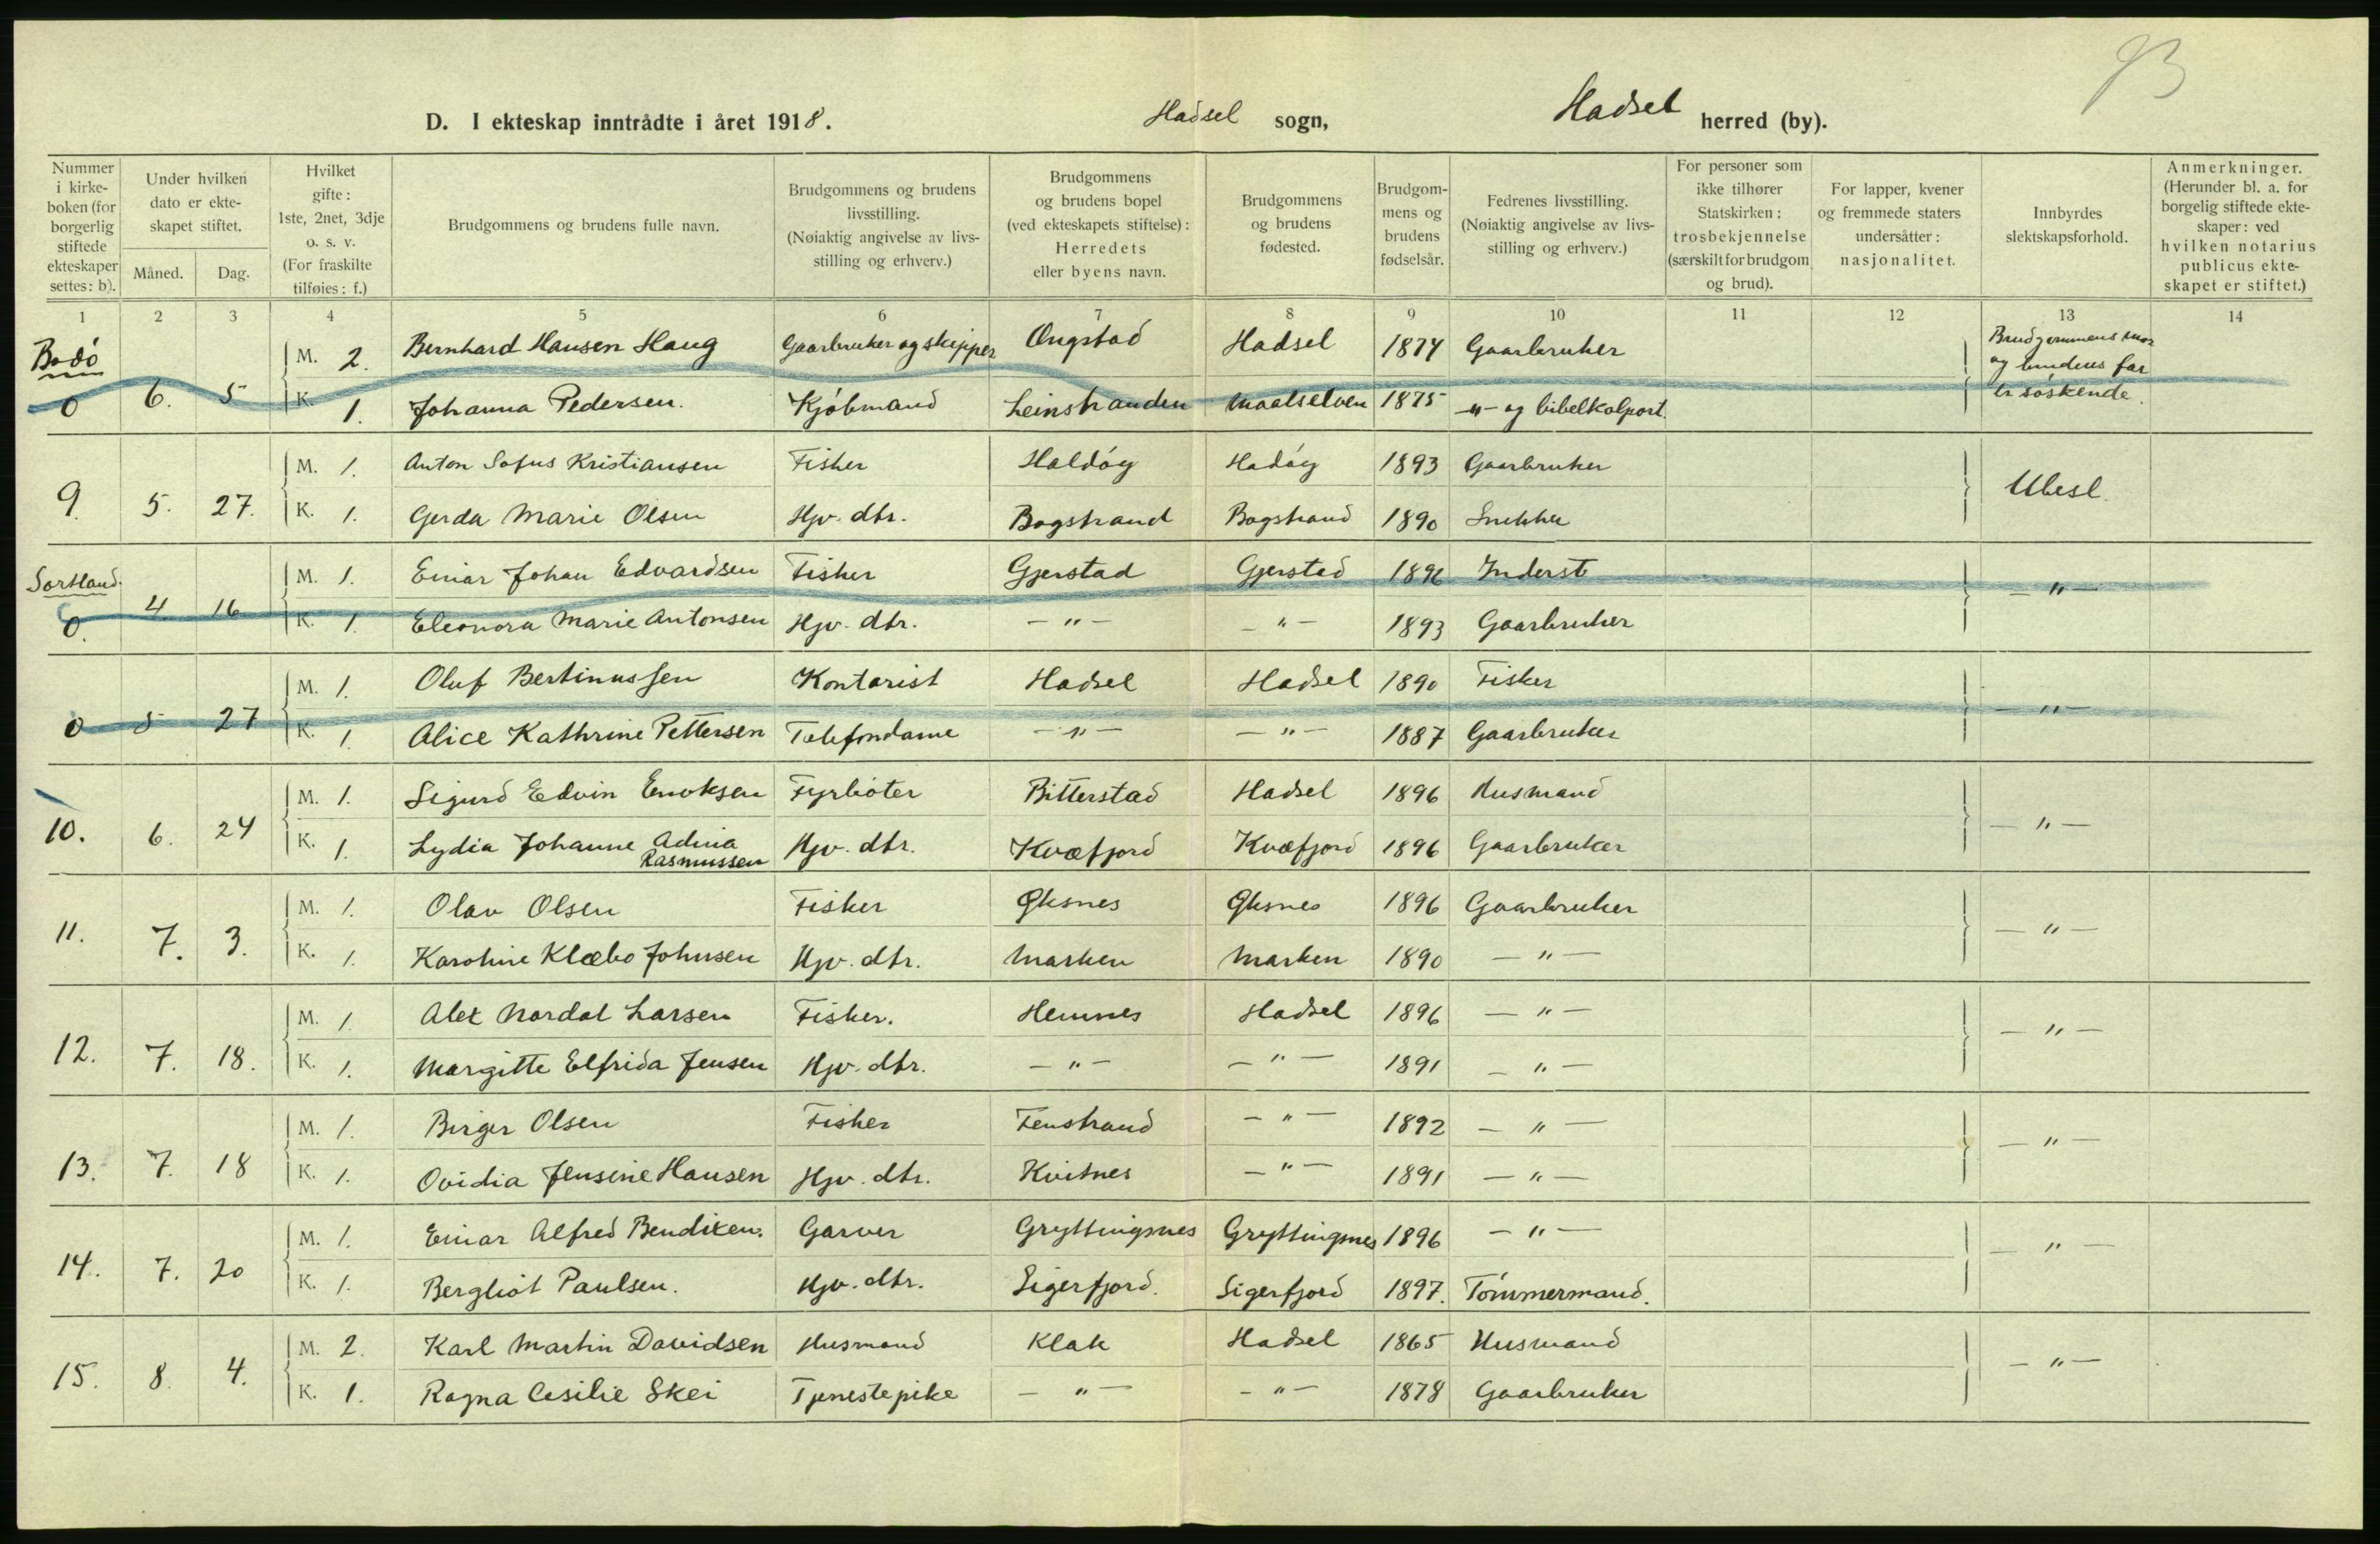 93
D. I ekteskap inntrådte i året 1918. Hadsel sogn, Hadsel herred (by).
Nummer i kirkeboken (for borgerlig stiftede ekteskaper settes: b).
Under hvilken dato er ekteskapet stiftet.
Måned. Dag.
Hvilket gifte: 1ste, 2net, 3dje o. s. v. (For fraskilte tilføies: f.)
Brudgommens og brudens fulle navn.
Brudgommens og brudens livsstilling. (Nøiaktig angivelse av livsstilling og erhverv.)
Brudgommens og brudens bopel (ved ekteskapets stiftelse): Herredets eller byens navn.
Brudgommens og brudens fødested.
Brudgommens og brudens fødselsår.
Fedrenes livsstilling. (Nøiaktig angivelse av livsstilling og erhverv.)
For personer som ikke tilhører Statskirken: trosbekjennelse (særskilt for brudgom og brud).
For lapper, kvener og fremmede staters undersåtter: nasjonalitet.
Innbyrdes slektskapsforhold.
Anmerkninger. (Herunder bl. a. for borgelig stiftede ekteskaper: ved hvilken notarius publicus ekteskapet er stiftet.)
1 2 3 4 5 6 7 8 9 10 11 12 13 14
Bodó M. 2. Bernhard Hansen Haug Gaarbruker og skipper Ongstad Hadsel 1874 Gaarbruker Brudgommens mor og brudens far er sóskende.
0 6. 5 K. 1. Johanna Pedersen. Kjóbmand Leinstranden Maalselven 1875 -"- og bibelkolport.
M. 1. Anton Sofus Kristiansen Fisker Haldóg Hadóg 1893 Gaarbruker
9. 5. 27. K. 1. Gerda Marie Olsen Hjv. dtr. Bogstrand Bogstrand 1890 Snekker Ubesl.
Sortland. M. 1. Einar Johan Edvardsen Fisker Gjerstad Gjerstad 1896 Inderst
0. 4. 16 K. 1. Eleonora Marie Antonsen Hjv. dtr. - " - - " - 1893 Gaarbruker - " -
M. 1. Oluf Bertinussen Kontorist Hadsel Hadsel 1890 Fisker
0 5 27 K. 1. Alice Kathrine Pettersen Telefondame - " - - " - 1887 Gaarbruker - " -
M. 1. Sigurd Edvin Enoksen Fyrbóter Bitterstad Hadsel 1896 Husmand
10. 6. 24 K. 1. Lydia Johanne Adina Rasmussen Hjv. dtr. Kvæfjord Kvæfjord 1896 Gaarbruker - " -
M. 1. Olav Olsen Fisker Øksnes Øksnes 1896 Gaarbruker
11. 7. 3. K. 1. Karoline Klæbo Johnsen Hjv. dtr. Marken Marken 1890 - " - - " -
M. 1. Alex Nordal Larsen Fisker. Hemnes Hadsel 1896 - " -
12. 7. 18. K. 1. Margitte Elfrida Jensen Hjv. dtr. - " - - " - 1891 - " - - " -
M. 1. Birger Olsen Fisker Fenstrand - " - 1892 - " -
13. 7. 18 K. 1. Ovidia Jensine Hansen Hjv. dtr. Kvitnes - " - 1891 - " - - " -
M. 1. Einar Alfred Bendixen. Garver Gryttingsnes Gryttingsnes 1896 - " -
14. 7. 20 K. 1. Bergliót Paulsen. Hjv. dtr. Sigerfjord. Sigerfjord 1897. Tómmermand. - " -
M. 2. Karl Martin Davidsen Husmand Klak Hadsel 1865 Husmand
15. 8. 4. K. 1. Ragna Cesilie Skei Tjenestepike - " - - " - 1878 Gaarbruker - " -